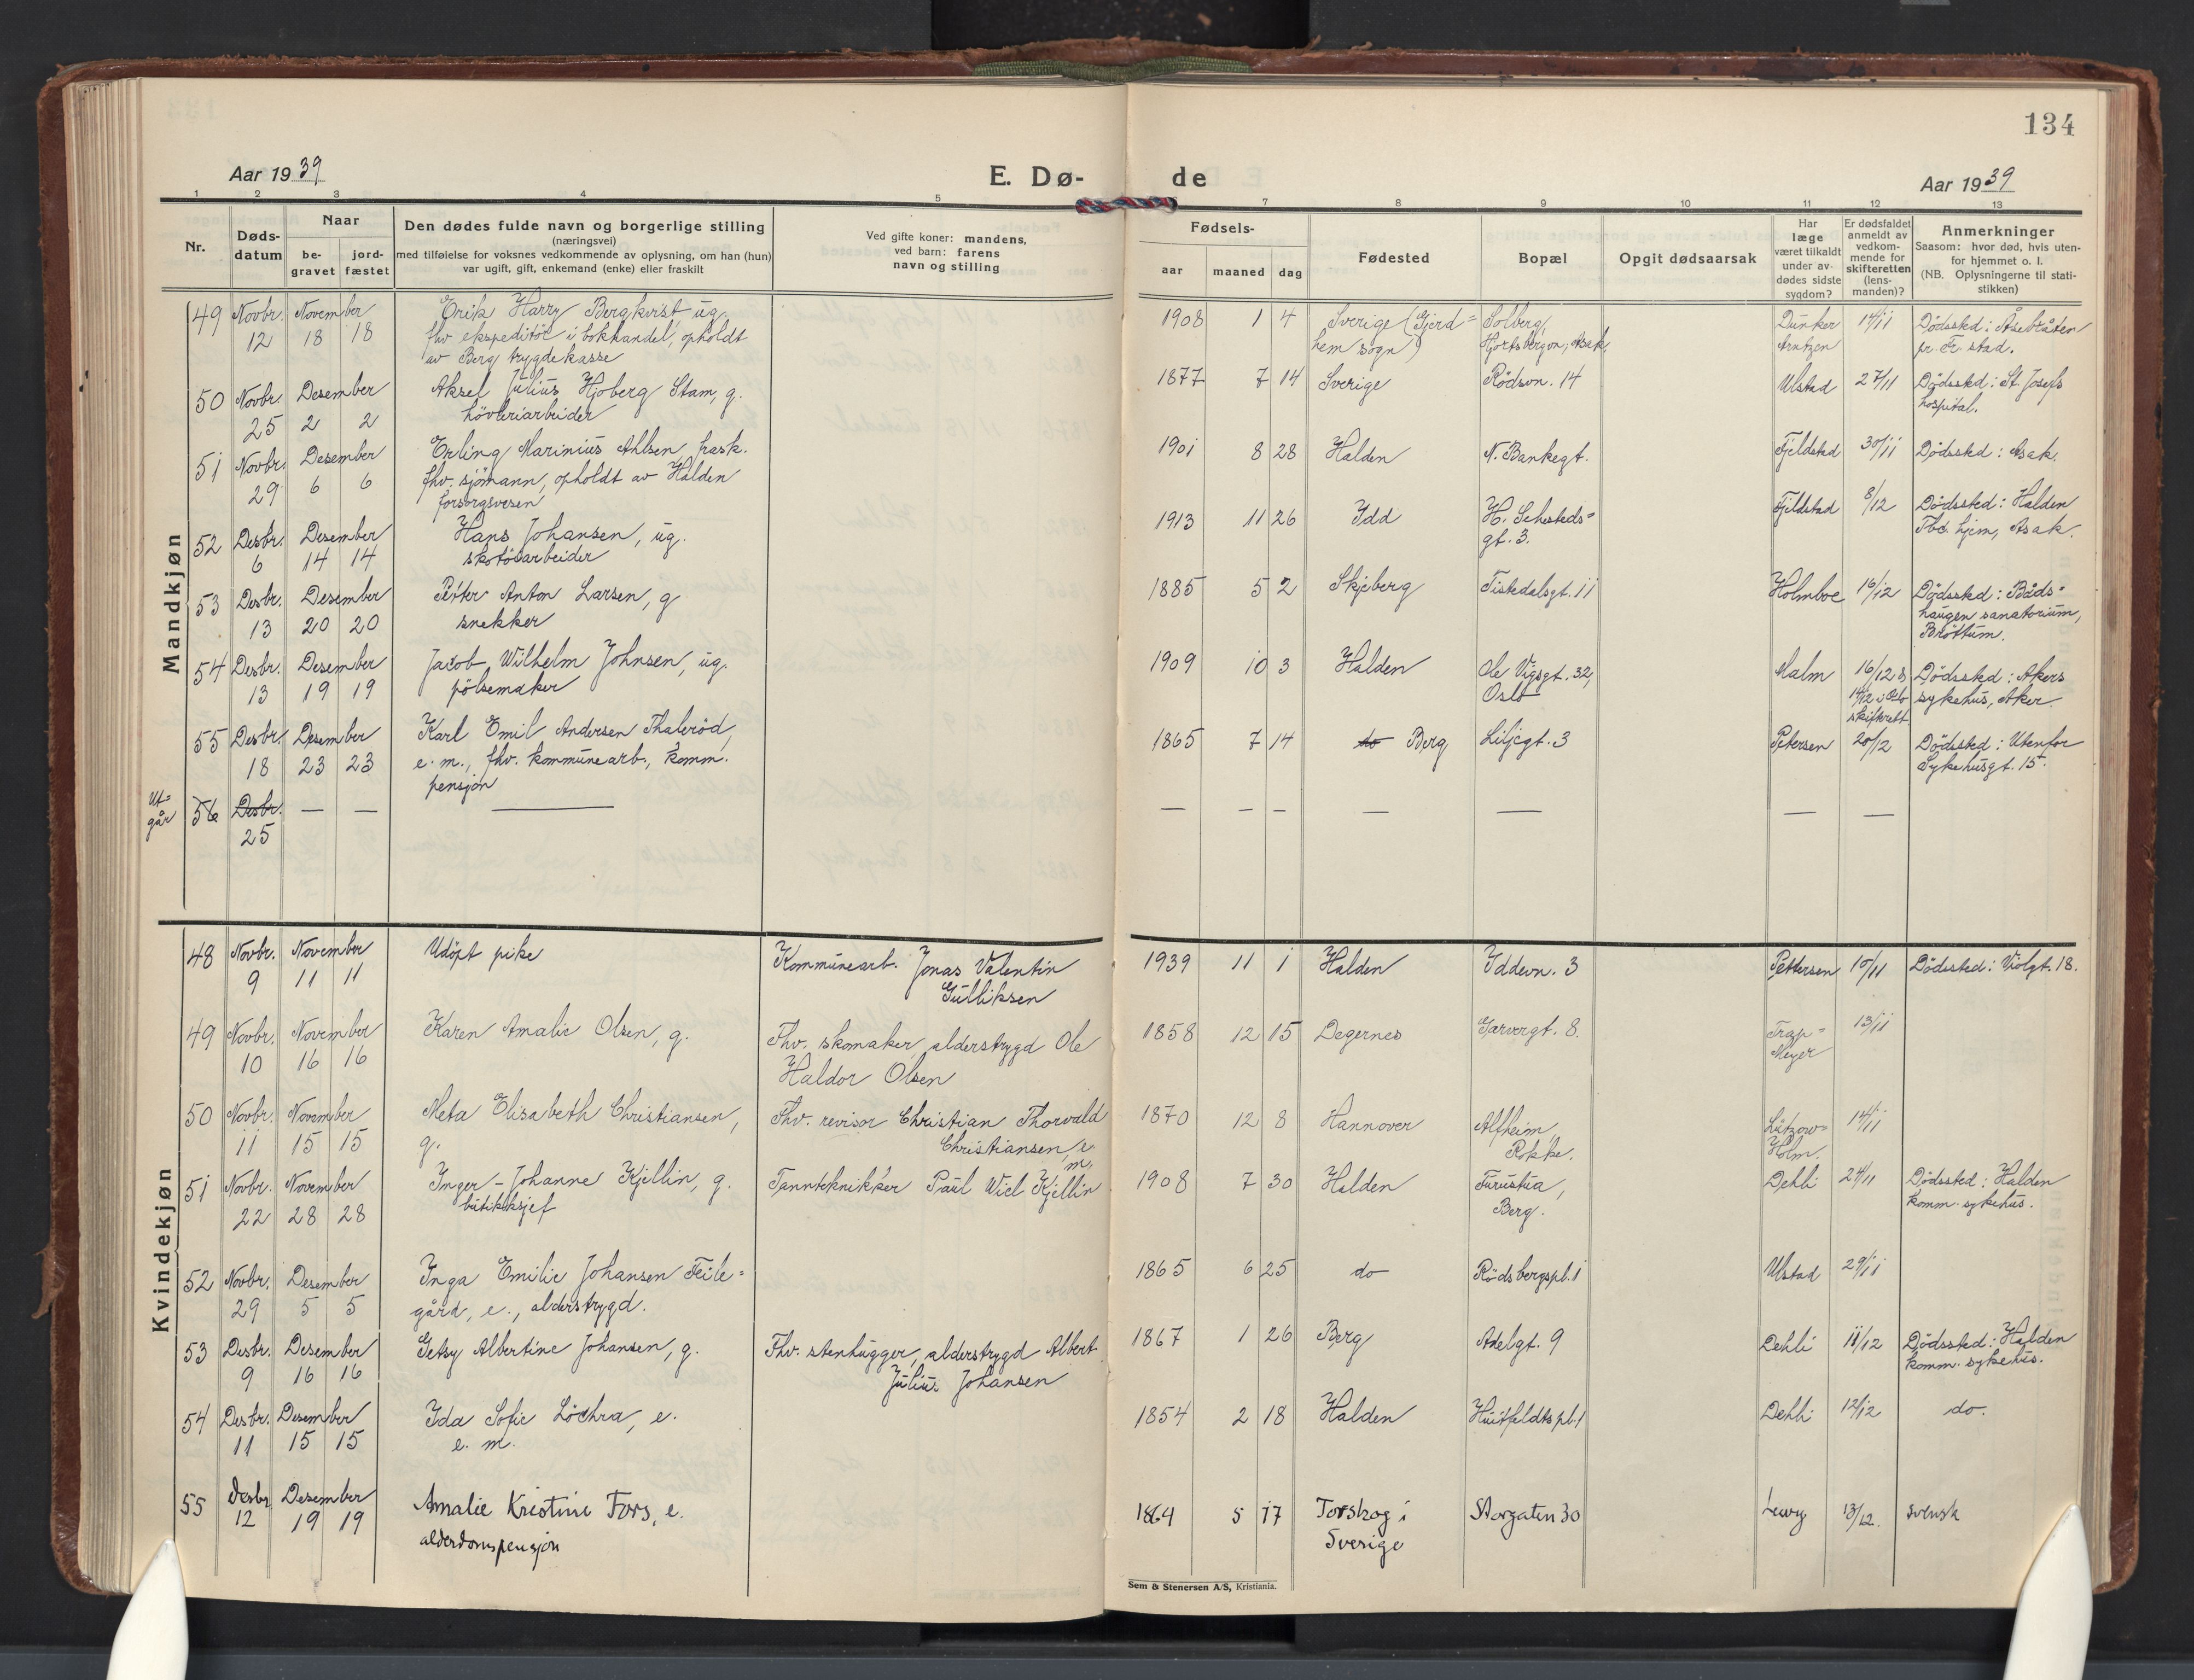 134
Aar 1939
E. Dø-
de
Aar 1939
1 2 3 4 5 7 8 9 10 11 12 13
Nr.
Døds-
datum
Naar
be-
gravet
jord-
fæstet
Den dødes fulde navn og borgerlige stilling
(næringsvei)
med tilføielse for voksnes vedkommende av oplysning, om han (hun)
var ugift, gift, enkemand (enke) eller fraskilt
Ved gifte koner: mandens,
ved barn: farens
navn og stilling
Fødsels-
aar maaned dag
Fødested
Bopæl
Opgit dødsaarsak
Har
læge
været tilkaldt
under av-
dødes sidste
sygdom?
Er dødsfaldet
anmeldt av
vedkom-
mende for
skifteretten
(lens-
manden)?
Anmerkninger
Saasom: hvor død, hvis uten-
for hjemmet o. l.
(NB. Oplysningerne til stati-
stikken)
Mandkjøn
49 Novbr. November Erik Harry Bergkvist, ug. 1908 1 4 Sverige (Gjerd= Solberg, Dunker 14/11 Dödssted: Åsebråten
12 18 18 fhv ekspeditör i bokhandel, opholdt hem sogn) Hjortsbergon, Asak, Arntzen pr. Fr. stad.
av Berg trygdekasse
50 Novbr. Desember Aksel Julius Hjoberg Stam, g. 1877 7 14 Sverige Rödsvn. 14 Ulstad 27/11 Dödssted: St Josefs
25 2 2 hövleriarbeider hospital.
51 Novbr. Desember Erling Marinius Ahlsen, frask. 1901 8 28 Halden N. Bankegt. Fjeldstad 30/11 Dödssted: Asak.
29 6 6 fhv. sjömann, opholdt av Halden
forsorgsvesen
52 Desbr. Desember Hans Johansen, ug. 1913 11 26 Idd H. Sehesteds= Fjeldstad 8/12 Dödssted: Halden
6 14 14 skotöiarbeider gt. 3. Tbc. hjem, Asak.
53 Desbr. Desember Peter Anton Larsen, g 1885 5 2 Skjeberg Tistedalsgt. 11 Holmboe 16/12 Dödssted: Båds=
13 20 20 snekker haugen sanatorium,
Bröttum.
54 Desbr. Desember Jacob Wilhelm Johnsen, ug. 1909 10 3 Halden Ole Vigsgt. 32, Malm 16/12 & Dödssted: Akers
13 19 19 pölsemaker Oslo 14/12 i Oslo sykehus, Aker.
skifterett
55 Desbr. Desember Karl Emil Andersen Thaleröd, 1865 7 14 do Berg Liljegt. 3 Petersen 20/12 Dödssted: Utenfor
18 23 23 e. m., fhv. kommunearb., komm. Sykehusgt. 15.
pensjon
Ut=
går 56 Desbr. — — — — — — — — — —
25
Kvindekjøn
48 Novbr. November Udöpt pike Kommunearb. Jonas Valentin 1939 11 1 Halden Iddevn. 3 Pettersen 10/11 Dödssted: Violgt. 18.
9 11 11 Gulliksen
49 Novbr. November Karen Amalie Olsen, g. Fhv. skomaker, alderstrygd Ole 1858 12 15 Degernes Garvergt. 8. Trap= 13/11
10 16 16 Haldor Olsen Meyer
50 Novbr. November Meta Elisabeth Christiansen, Fhv. revisor Christian Thorvald 1870 12 8 Hannover Alfheim, Lützow= 14/11
11 15 15 g. Christiansen, e. Rokke. Holm.
m.
51 Novbr. November Inger-Johanne Kjellin, g. Tanntekniker Paul Wiel Kjellin 1908 7 30 Halden Furustua, Dehli 24/11 Dödssted: Halden
22 28 28 butikksjef Berg. komm. sykehus.
52 Novbr. Desember Inga Emilie Johansen Feile= 1865 6 25 do Rödsbergspl. 1 Ulstad 29/11
29 5 5 gård, e., alderstrygd.
53 Desbr. Desember Getsy Albertine Johansen, g. Fhv. stenhugger, alderstrygd Albert 1867 1 26 Berg Adelgt. 9 Dehli 11/12 Dödssted: Halden
9 16 16 Julius Johansen komm. sykehus.
54 Desbr. Desember Ida Sofie Löchra, e. 1854 2 18 Halden Huitfeldts pl. 1 Dehli 12/12 do.
11 15 15 e. m.
55 Desbr. Desember Amalie Kristine Fors, e. 1864 5 17 Torskog i Storgaten 30 Lewy 13/12. svensk
12 19 19 alderdomspensjon Sverige
Sem & Stenersen A/S, Kristiania.